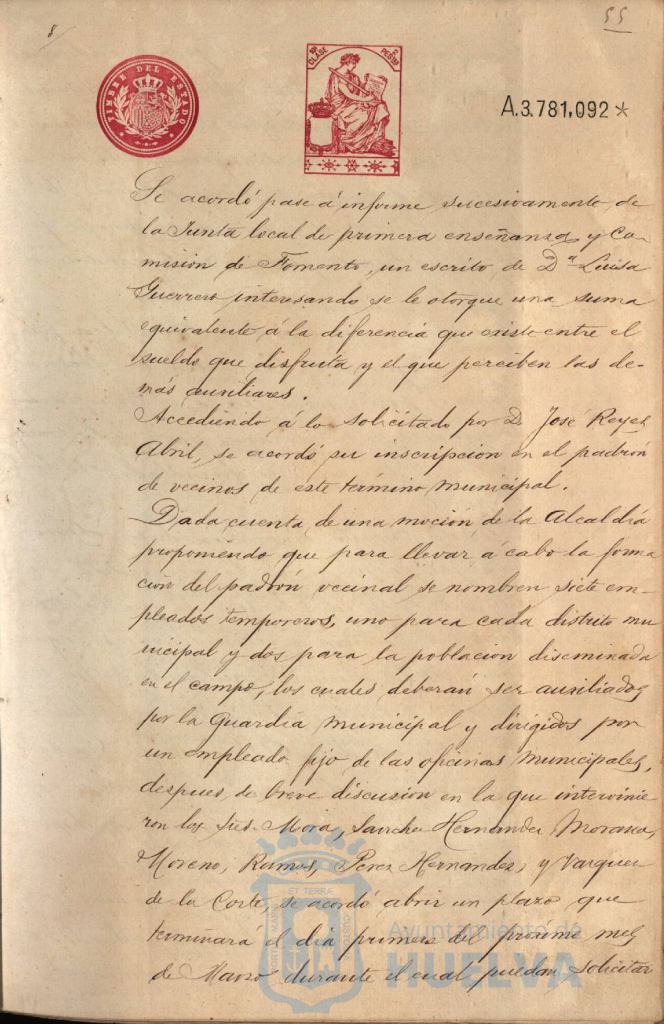 8/
55
TIMBRE DEL ESTADO
10ª CLASE
2 PESETAS
A.3.781,092*
Se acordó pase á informe sucesivamente de
la Junta local de primera enseñanza y Co-
misión de Fomento, un escrito de Dª Luisa
Guerrero interesando se le otorgue una suma
equivalente á la diferencia que existe entre el
sueldo que disfruta y el que perciben las de-
más auxiliares.
Accediendo á lo solicitado por D. José Reyes
Abril, se acordó su inscripcion en el padrón
de vecinos de este término municipal.
Dada cuenta de una moción de la Alcaldía
proponiendo que para llevar á cabo la forma
ción del padrón vecinal se nombren siete em-
pleados temporeros, uno para cada distrito mu
nicipal y dos para la poblacion diseminada
en el campo, los cuales deberán ser auxiliados
por la Guardia municipal y dirigidos por
un empleado fijo de las oficinas municipales,
despues de breve discusion en la que intervinie
ron los Sres. Mora, Sanchez Hernandez,
Moreno, Ramos, Perez Hernandez, y Vazquez
de la Corte, se acordó abrir un plazo que
terminará el día primero del próximo mes
de Marzo durante el cual puedan solicitar
Ayuntamiento de
HUELVA